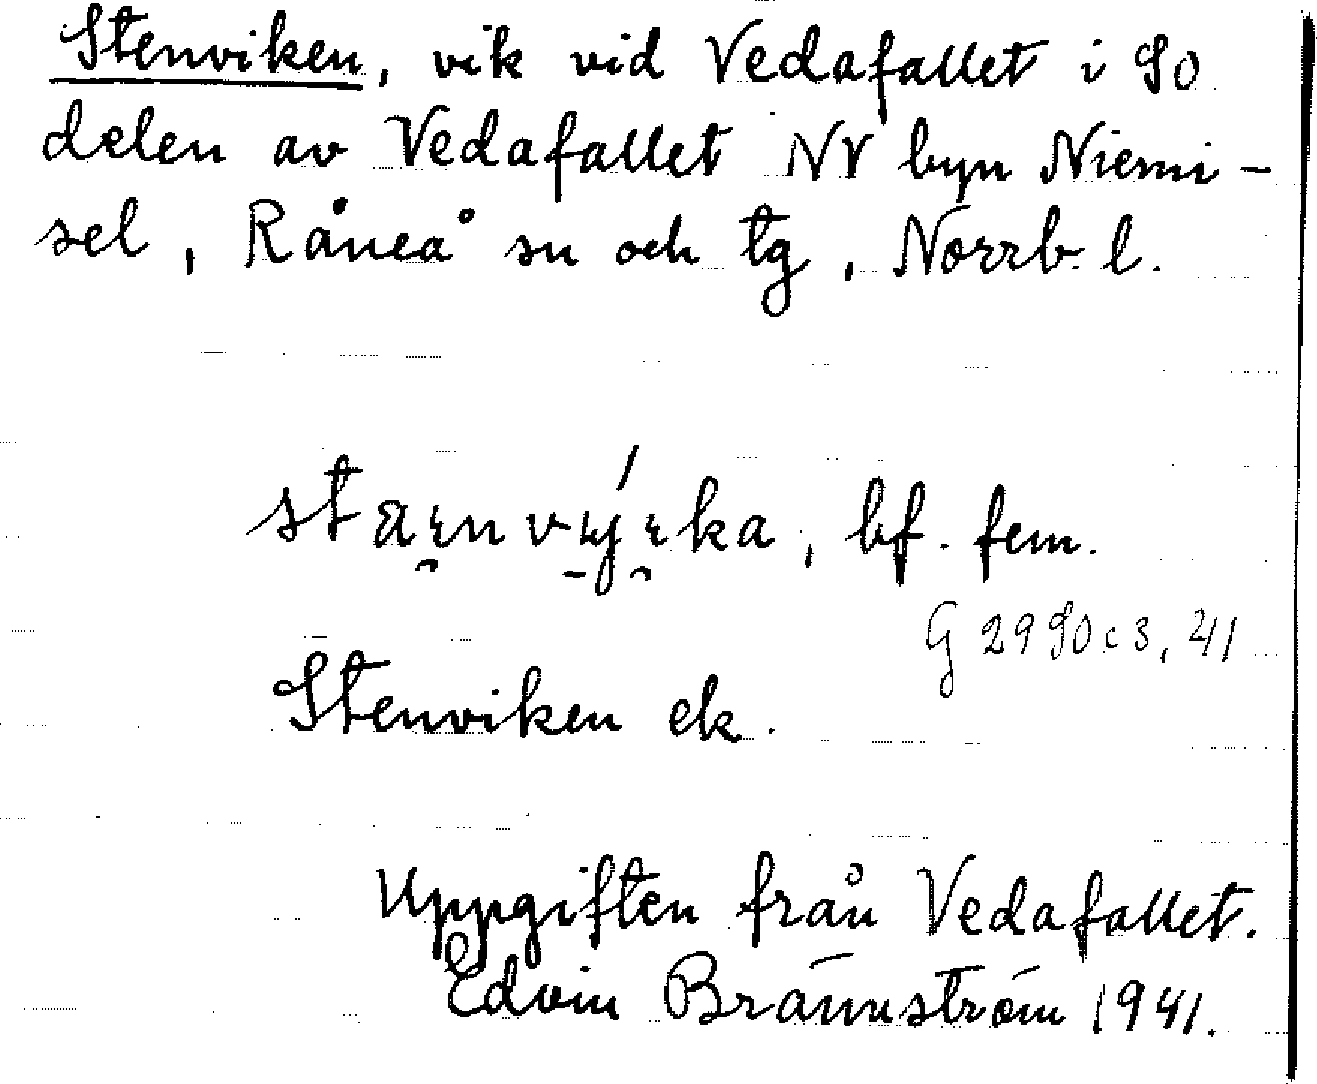 Stenviken, vik vid Vedafallet i SO
delen av Vedafallet NV byn Niemi-
sel, Råneå sn och tg, Norrb. l.
bf. fem.
G 2990 c 3, 41
Stenviken ek.
Uppgiften från Vedafallet.
Edvin Brännström 1941.